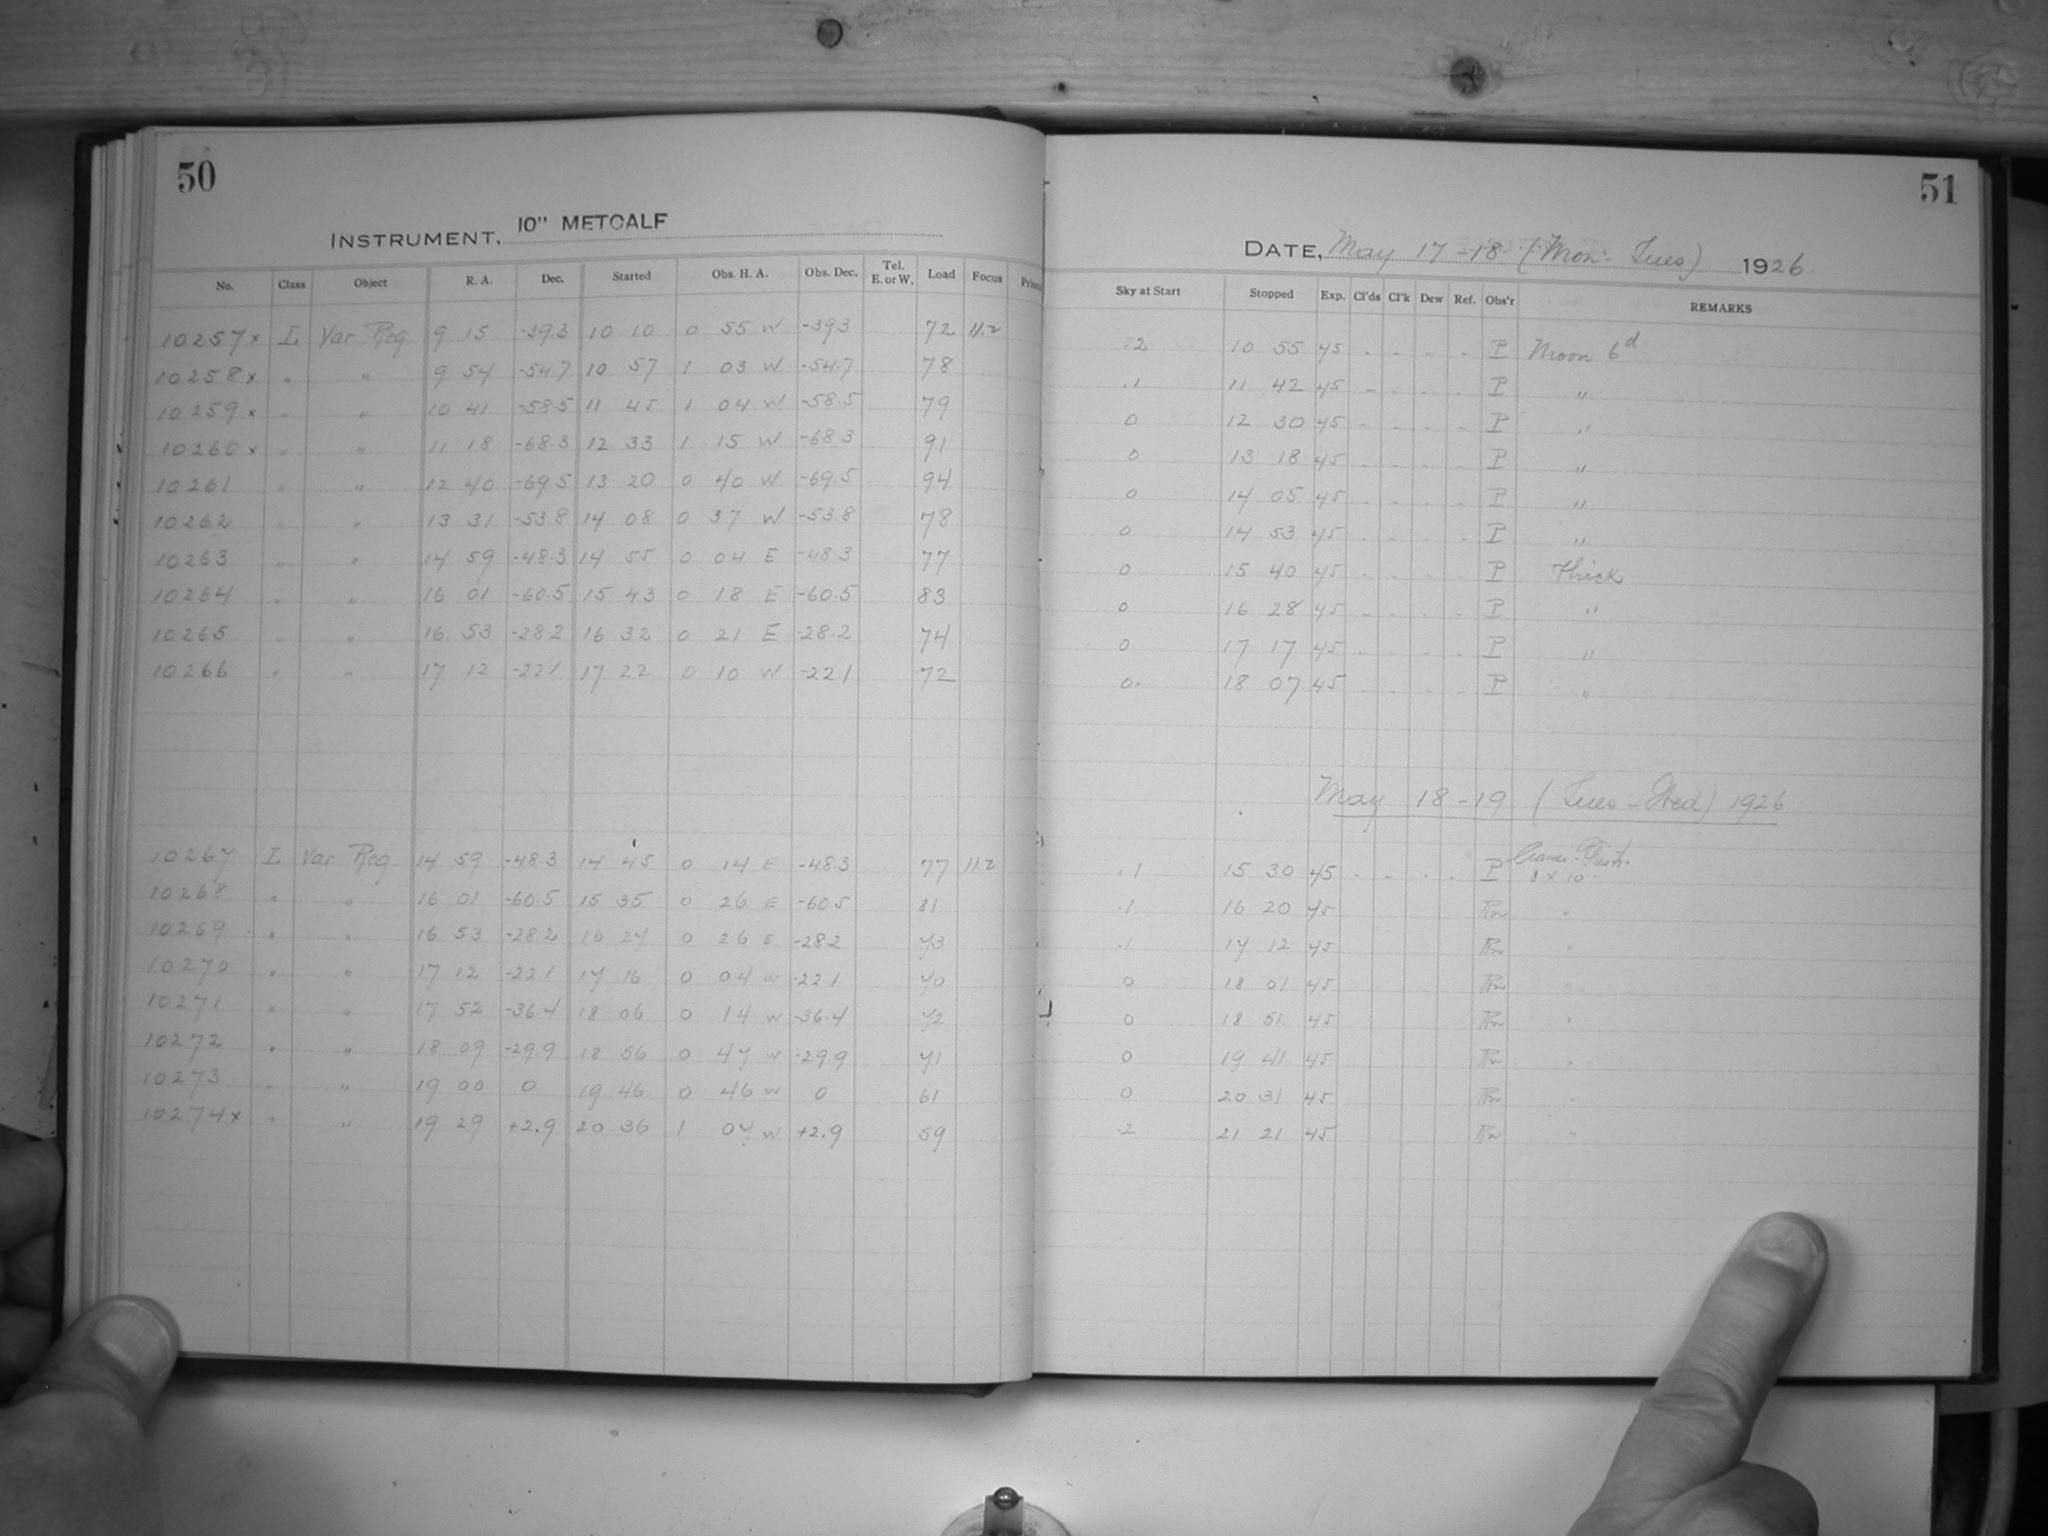 50
INSTRUMENT, 10" METCALF
No. Class Object R. A. Dec. Started Obs. H. A. Obs. Dec. Tel. E. or W. Load Focus Prism
10257x L Var Reg 9 15 -39.3 10 10 0 55 W -39.3 72 11.2
10258x " " 9 54 -54.7 10 57 1 03 W -54.7 78
10259x " " 10 41 -58.5 11 45 1 04 W -58.5 79
10260x " " 11 18 -68.3 12 33 1 15 W -68.3 91
10261 " " 12 40 -69.5 13 20 0 40 W -69.5 94
10262 " " 13 31 -53.8 14 08 0 37 W -53.8 78
10263 " " 14 59 -48.3 14 55 0 04 E -48.3 77
10264 " " 16 01 -60.5 15 43 0 18 E -60.5 83
10265 " " 16 53 -28.2 16 32 0 21 E -28.2 74
10266 " " 17 12 -22.1 17 22 0 10 W -22.1 72
10267 L Var Reg. 14 59 -48.3 14 45 0 14 E -48.3 77 11.2
10268 " " 16 01 -60.5 15 35 0 26 E -60.5 81
10269 " " 16 53 -28.2 16 27 0 26 E -28.2 73
10270 " " 17 12 -22.1 17 16 0 04 W -22.1 70
10271 " " 17 52 -36.4 18 06 0 14 W -36.4 72
10272 " " 18 09 -29.9 18 56 0 47 W -29.9 71
10273 " " 19 00 0 19 46 0 46 W 0 61
10274x " " 19 29 +2.9 20 36 1 07 W +2.9 59
51
DATE, May 17-18 (Mon- Tues) 1926
Sky at Start Stopped Exp. Cl'ds Cl'k Dew Ref. Obs'r REMARKS
.2 10 55 45 - - - - P Moon 6d.
.1 11 42 45 - - - - P "
0 12 30 45 - - - - P "
0 13 18 45 - - - - P "
0 14 05 45 - - - - P "
0 14 53 45 - - - - P "
0 15 40 45 - - - - P Thick
0 16 28 45 - - - - P "
0 17 17 45 - - - - P "
0 18 07 45 - - - - P "
May 18-19 (Tues-Wed) 1926
.1 15 30 45 - - - - P 8 x 10
.1 16 20 45 "
.1 17 12 45 "
0 18 01 45 "
0 18 51 45 "
0 19 41 45 "
0 20 31 45 "
.2 21 21 45 "